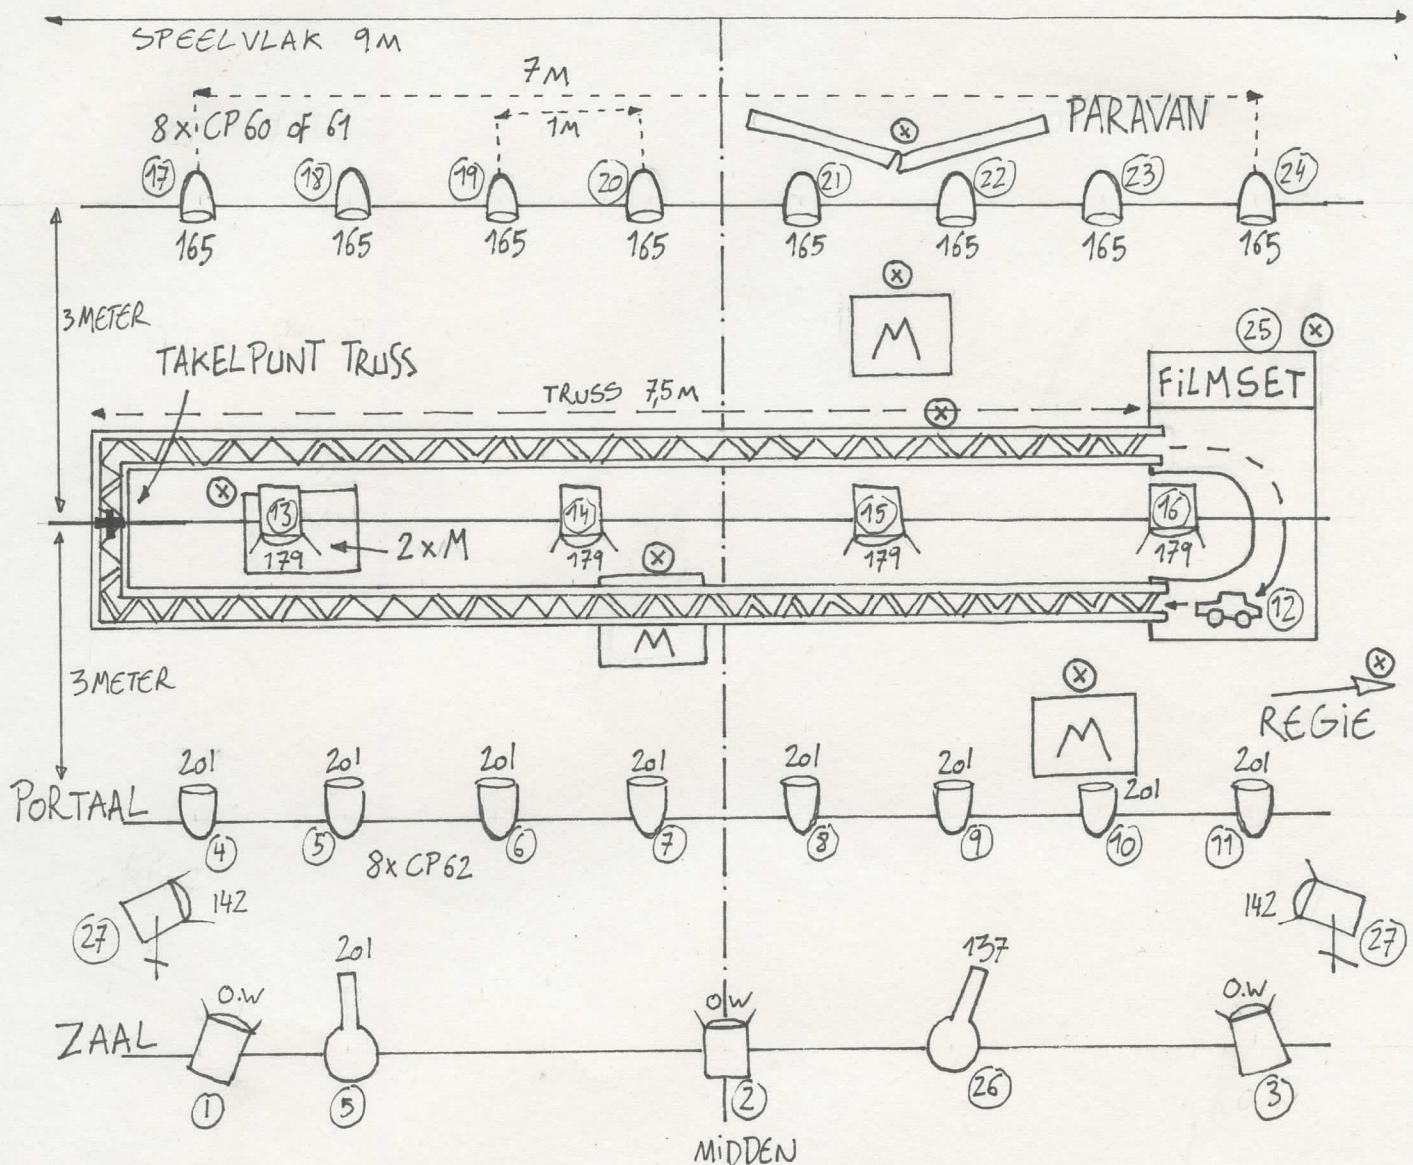 SPEELVLAK 9M
7M
8x CP60 of 61
1M
PARAVAN
17 18 19 20 21 22 23 24
165 165 165 165 165 165 165 165
3 METER
M
25
TAKELPUNT TRUSS
FiLMSET
TRUSS 7,5M
13 14 15 16
2xM
179 179 179 179
12
M
3 METER
M
REGiE
201 201 201 201 201 201 201 201
PORTAAL
4 5 6 7 8 9 10 11
8x CP62
27 142 142 27
201 137
O.W O.W O.W
ZAAL
1 5 2 26 3
MiDDEN